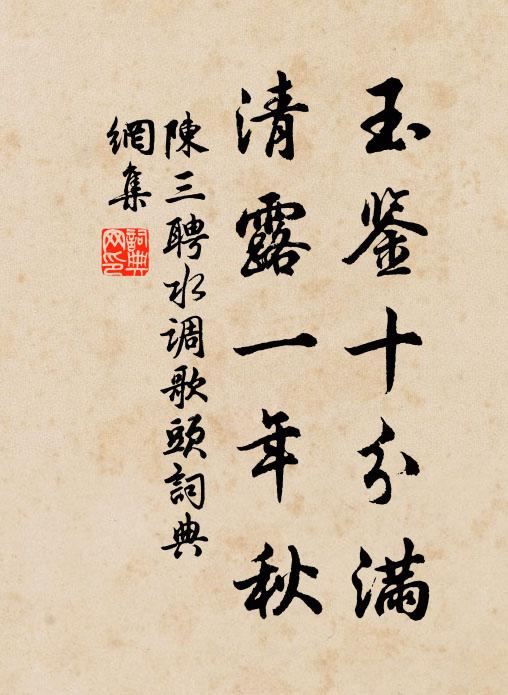 玉鉴十分满
清露一年秋
陳三聘水调歌頭詞典
網集
詞典
网印